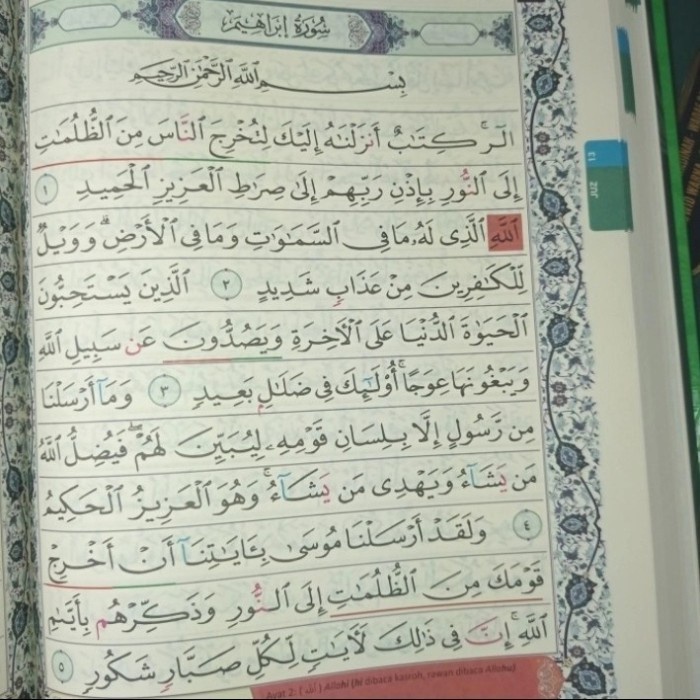 سُورَةُ إِبْرَاهِيمَ
بِسْمِ اللَّهِ الرَّحْمَٰنِ الرَّحِيمِ
الٓرۚ كِتَٰبٌ أَنزَلْنَٰهُ إِلَيْكَ لِتُخْرِجَ النَّاسَ مِنَ الظُّلُمَٰتِ
إِلَى النُّورِ بِإِذْنِ رَبِّهِمْ إِلَىٰ صِرَٰطِ الْعَزِيزِ الْحَمِيدِ ١
اللَّهِ الَّذِى لَهُۥ مَا فِى السَّمَٰوَٰتِ وَمَا فِى الْأَرْضِۗ وَوَيْلٌ
لِّلْكَٰفِرِينَ مِنْ عَذَابٍ شَدِيدٍ ٢ الَّذِينَ يَسْتَحِبُّونَ
الْحَيَوٰةَ الدُّنْيَا عَلَى الْأٓخِرَةِ وَيَصُدُّونَ عَن سَبِيلِ اللَّهِ
وَيَبْغُونَهَا عِوَجًاۚ أُو۟لَٰٓئِكَ فِى ضَلَٰلٍۭ بَعِيدٍ ٣ وَمَآ أَرْسَلْنَا
مِن رَّسُولٍ إِلَّا بِلِسَانِ قَوْمِهِۦ لِيُبَيِّنَ لَهُمْۖ فَيُضِلُّ اللَّهُ
مَن يَشَآءُ وَيَهْدِى مَن يَشَآءُۚ وَهُوَ الْعَزِيزُ الْحَكِيمُ
٤ وَلَقَدْ أَرْسَلْنَا مُوسَىٰ بِـَٔايَٰتِنَآ أَنْ أَخْرِجْ
قَوْمَكَ مِنَ الظُّلُمَٰتِ إِلَى النُّورِ وَذَكِّرْهُم بِأَيَّىٰمِ
اللَّهِۚ إِنَّ فِى ذَٰلِكَ لَأٓيَٰتٍ لِّكُلِّ صَبَّارٍ شَكُورٍ ٥
Ayat 2: ( اللهِ ) Allohi (hi dibaca kasroh, tawan dibaca Allohu)
JUZ 13